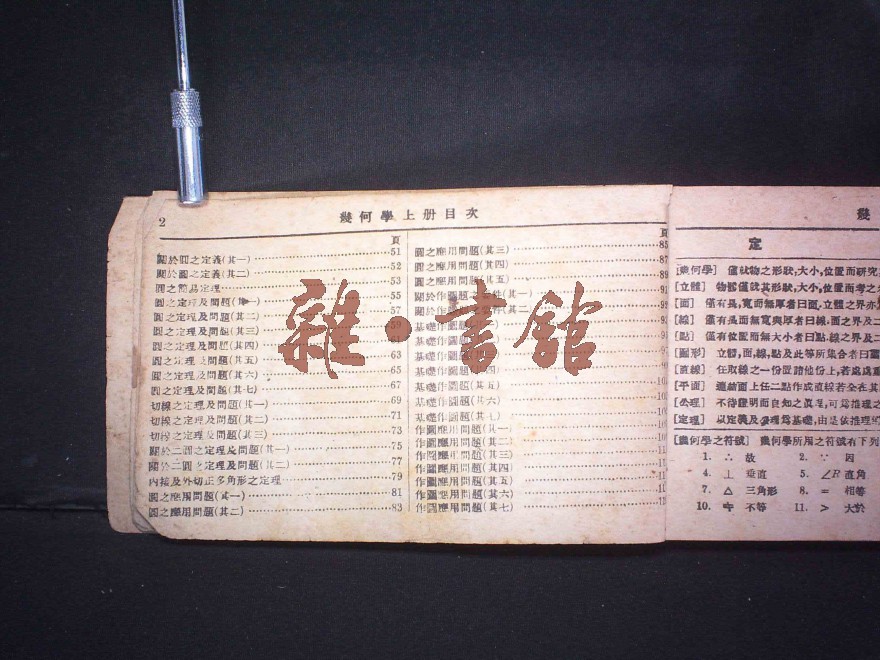 2
幾何學上册目次
頁
關於圓之定義(其一)51
關於圓之定義(其二)52
圓之簡易定理53
圓之定理及問題(其一)55
圓之定理及問題(其二)57
圓之定理及問題(其三)59
圓之定理及問題(其四)
圓之定理及問題(其五)63
圓之定理及問題(其六)65
圓之定理及問題(其七)67
切線之定理及問題(其一)69
切線之定理及問題(其二)71
切線之定理及問題(其三)73
關於二圓之定理及問題(其一)75
關於二圓之定理及問題(其二)77
內接及外切正多角形之定理79
圓之應用問題(其一)81
圓之應用問題(其二)83
頁
圓之應用問題(其三)85
圓之應用問題(其四)87
圓之應用問題(其五)89
關於作圖題之 (其一)
關於作圖 (其二
基礎作圖題(
基礎作
基礎作圖
基礎作圖題( 四)
基礎作圖題(其五)
基礎作圖題(其六)
基礎作圖題(其七)
作圖應用問題(其一)
作圖應用問題(其二)
作圖應用問題(其三)
作圖應用問題(其四)
作圖應用問題(其五)
作圖應用問題(其六)
作圖應用問題(其七)
雜·書館
幾
定
[幾何學] 僅就物之形狀,大小,位置而研究
[立體] 物體僅就其形狀,大小,位置而考之
[面] 僅有長,寬而無厚者曰面,立體之界亦
[線] 僅有長而無寬與厚者曰線,面之界及二
[點] 僅有位置而無大小者曰點,線之界及二
[圖形] 立體,面,線,點及此等所集合者曰圖
[直線] 任取線之一份置諸他份上,若處處重
[平面] 連結面上任二點作成直線若全在其
[公理] 不待證明而自知之眞理,可爲推理之
[定理] 以定義及公理爲基礎,由是依推理的
[幾何學之符號] 幾何學所用之符號有下列
1. ∴ 故 2. ∵ 因
4. ⊥ 垂直 5. ∠R 直角
7. △ 三角形 8. = 相等
10. ≠ 不等 11. > 大於